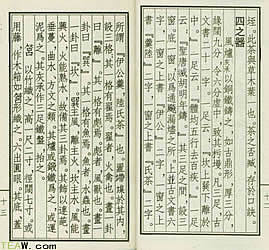 坯。此茶與草木葉一也。茶之否臧,存於口訣。
四之器
風爐以銅鐵鑄之,如古鼎形。厚三分,
緣闊九分,令六分虛中,致其杇墁。凡三足,古
文書二十一字:一足云「坎上巽下離于
中」;一足云「體均五行去百疾」;一足云
「聖唐滅胡明年鑄」。其三足之間,設三
窗,底一窗,以為通飈漏燼之所。上並古文書六
字:一窗之上書「伊公」二字;一窗之上
書「羹陸」二字;一窗之上書「氏茶」二字。
所謂「伊公羹、陸氏茶」也。置於其內,
設三格:其一格有翟焉,翟者,火禽也,畫一卦
曰「離」;其一格有彪焉,彪者,風獸也,畫一卦
曰「巽」;其一格有魚焉,魚者,水蟲也,畫
一卦曰「坎」。巽主風,離主火,坎主水。風能
興火,火能熟水,故備其三卦焉。其飾以連葩、
垂蔓、曲水、方文之類。其爐或鍛鐵為之,或運
泥為之,其灰承作三足鐵柈,抬之。
筥 以竹織之,高一尺二寸,徑闊七寸。或
用藤,作木楦,如筥形,織之,六出圓眼。其底、蓋